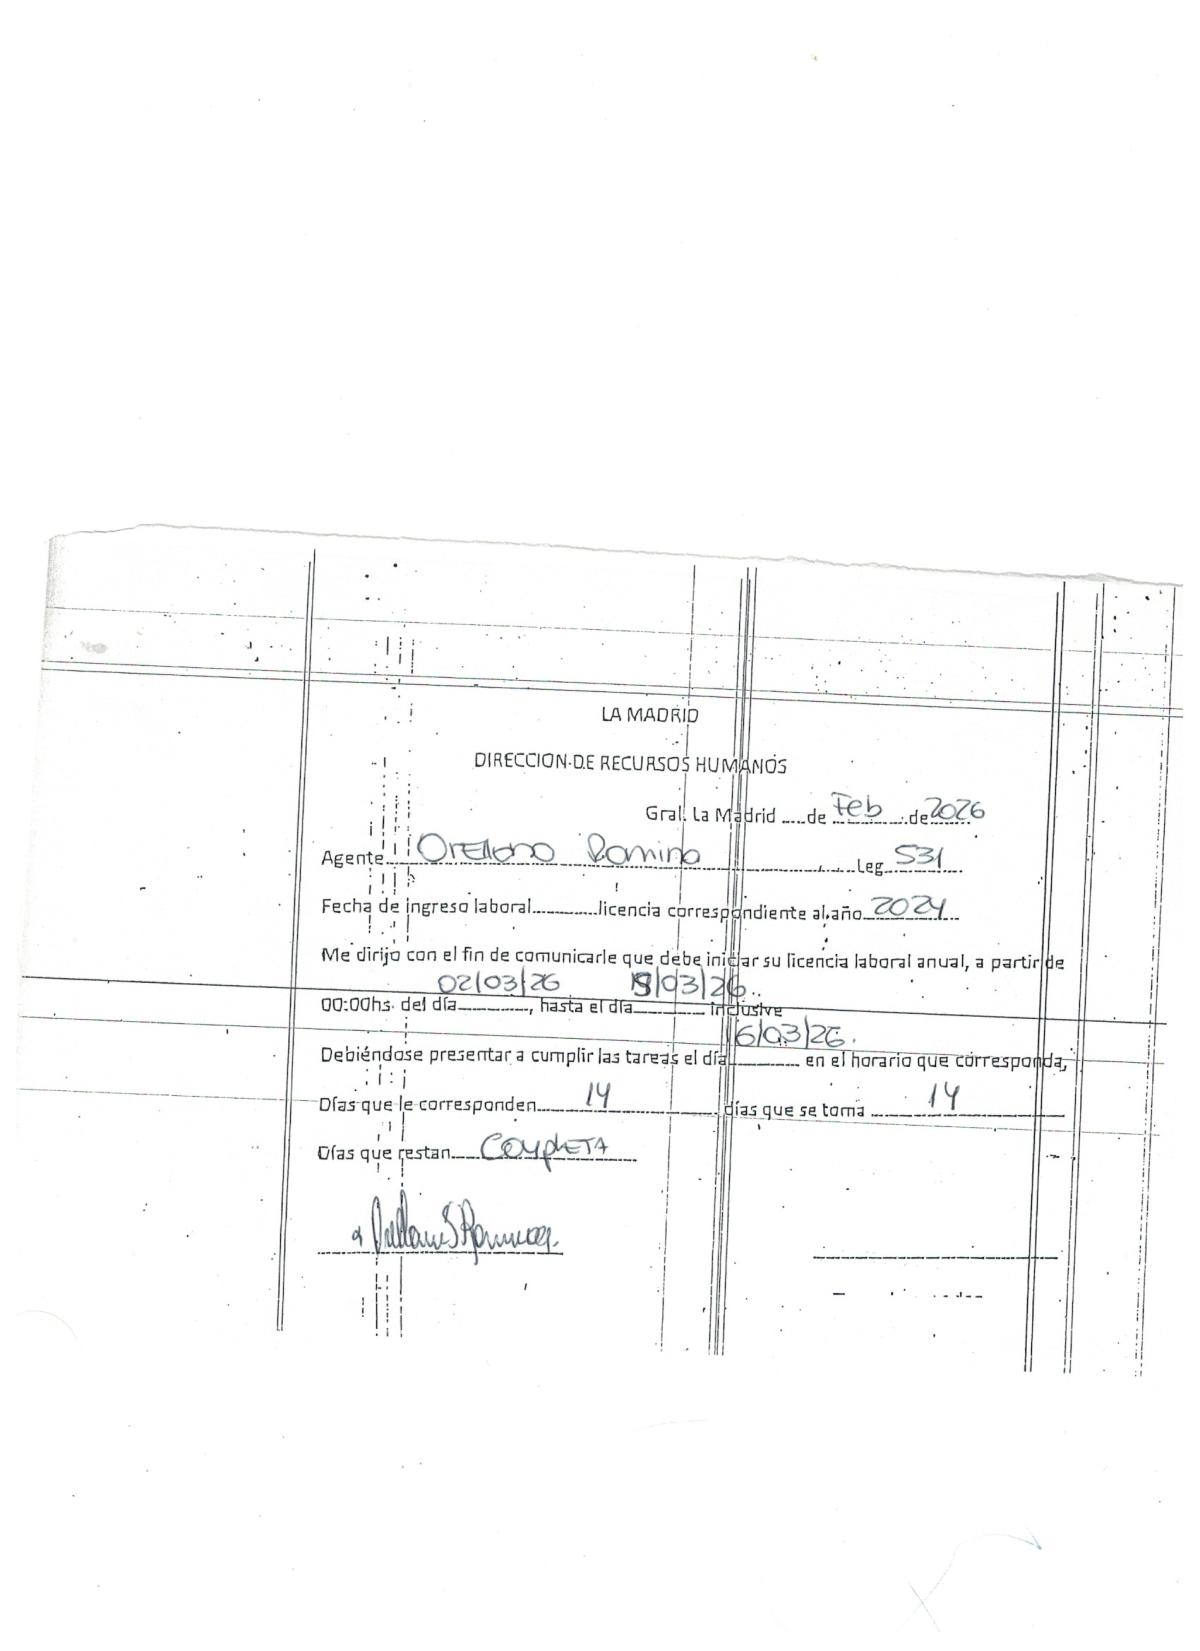 LA MADRID
DIRECCION DE RECURSOS HUMANOS
Gral. La Madrid .....de Feb de 2026
Agente Orellano Romina Leg 531
Fecha de ingreso laboral............licencia correspondiente al año 2024
Me dirijo con el fin de comunicarle que debe iniciar su licencia laboral anual, a partir de
00:00hs. del día 02/03/26, hasta el día 15/03/26 inclusive
Debiéndose presentar a cumplir las tareas el día 16/03/26. en el horario que corresponda,
Días que le corresponden 14 días que se toma 14
Días que restan Completa